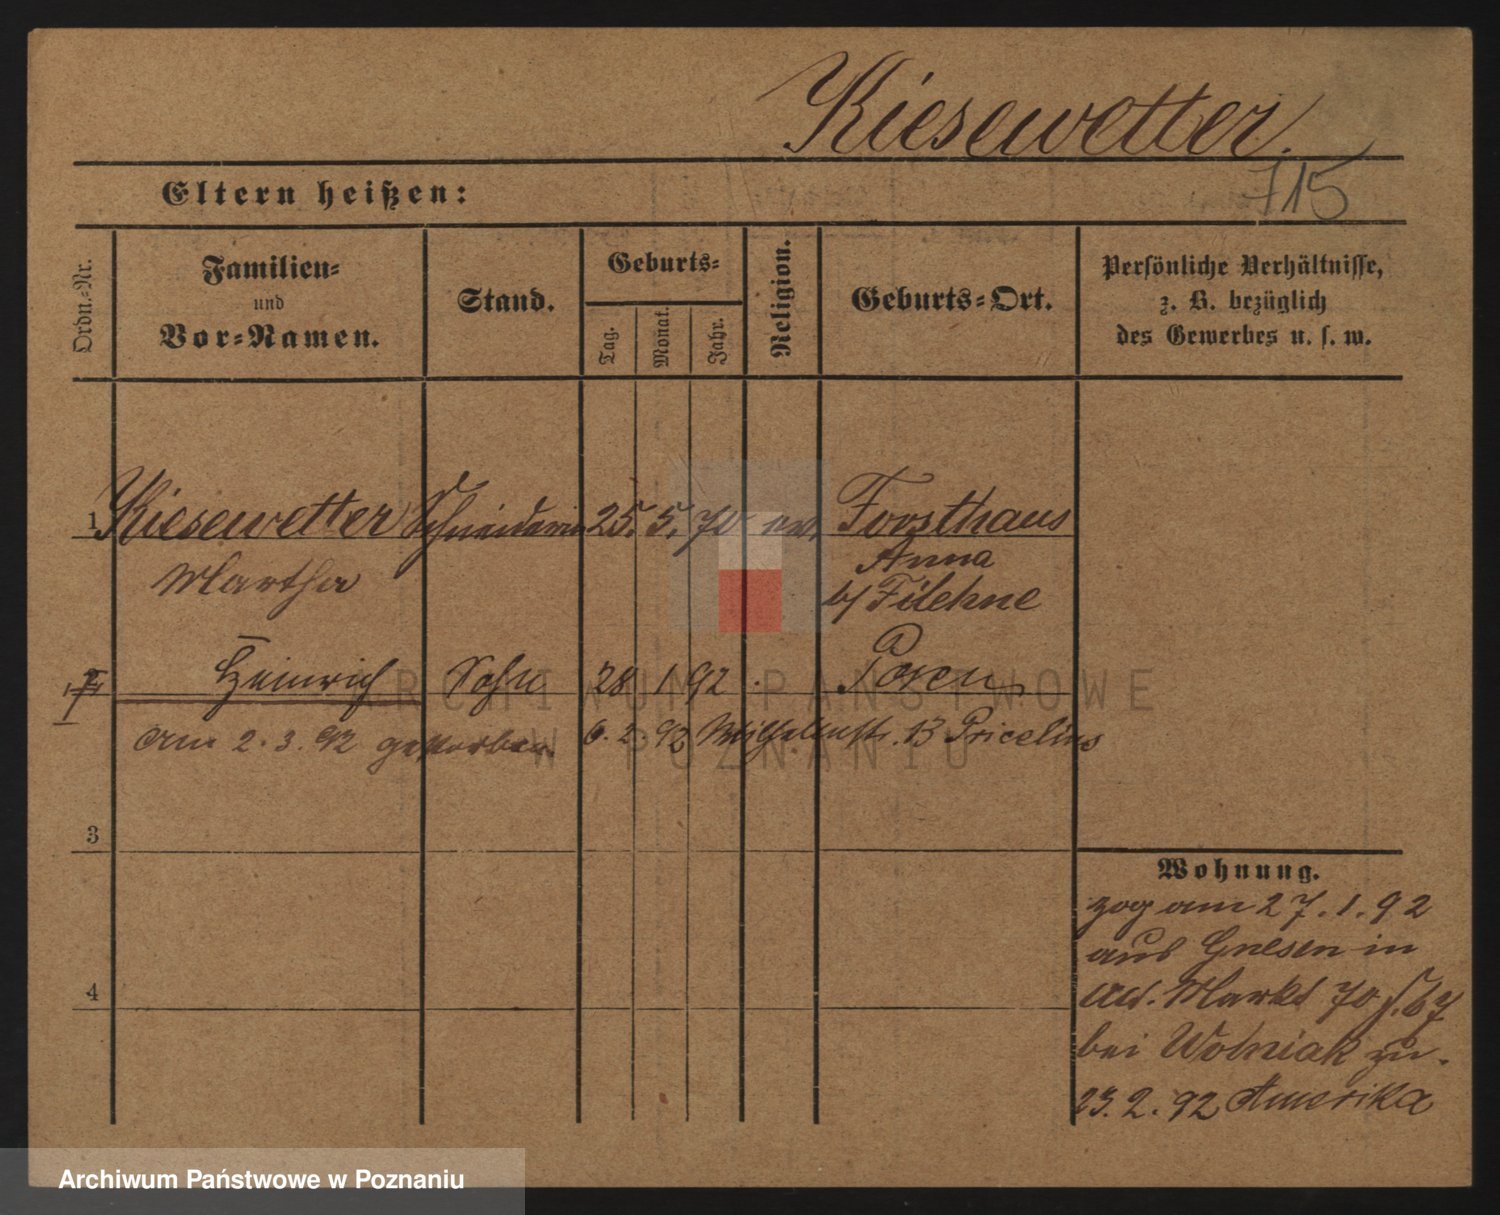 Kiesewetter.
715
Eltern heißen:
Ordn.-Nr.
Familien-
und
Vor-Namen.
Stand.
Geburts-
Tag.
Monat.
Jahr.
Religion.
Geburts-Ort.
Persönliche Verhältnisse,
z. B. bezüglich
des Gewerbes u. s. w.
1 Kiesewetter Schneiderin 25. 5. 70 ev. Forsthaus
Martha Anna
b/ Filehne
2 Heinrich Sohn 28 1 92 Posen
am 2. 3. 92 gestorben 6. 2. 92 Wilhelmstr. 13 Pricelius
3
4
Wohnung.
zog am 27. 1. 92
aus Gnesen in
Markt 70
bei Wolniak zu.
23. 2. 92 Amerika
ARCHIWUM PAŃSTWOWE
W POZNANIU
Archiwum Państwowe w Poznaniu